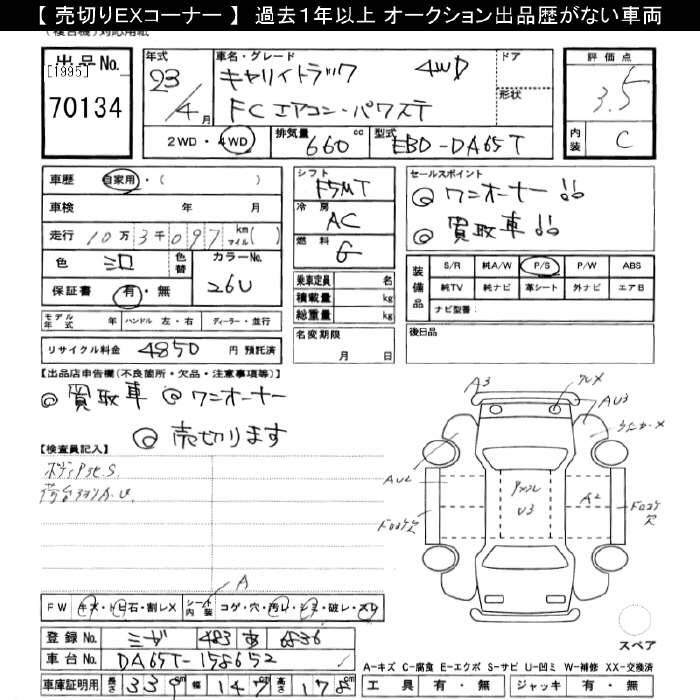 【 売切りEXコーナー 】 過去１年以上 オークション出品歴がない車両
出品No.
[1995]
70134
年式 23/4月
車名・グレード キャリイトラック 4WD
FC エアコン・パワステ
ドア
形状
2WD・4WD
排気量 660cc
型式 EBD-DA65T
評価点 3.5
内装 C
車歴 自家用・( )
車検 年 月
走行 10万3千097 kmマイル( )
色 シロ 色替
カラーNo. 26U
保証書 有・無
モデル年式 年 ハンドル 左・右 ディーラー・並行
リサイクル料金 4850 円 預託済
シフト F5MT
冷房 AC
燃料 G
乗車定員 名
積載量 kg
総重量 kg
名変期限 月 日
セールスポイント
◎ワンオーナー!!
◎買取車!!
装備品
S/R 純A/W P/S P/W ABS
純TV 純ナビ 革シート 外ナビ エアB
ナビ型番:
後日品
【出品店申告欄(不良箇所・欠品・注意事項等)】
◎買取車 ◎ワンオーナー
◎売切ります
【検査員記入】
A3
AU3
AU2
U3
A2
A
FW キズ・トビ石・割レX
シート内装 コゲ・穴・汚レ・シミ・破レ・スレ
登録No. 483 あ 6836
車台No. DA65T-158652
車庫証明用 長さ 339cm 幅 147cm 高さ 178cm
スペア
A-キズ C-腐食 E-エクボ S-サビ U-凹ミ W-補修 XX-交換済
工具 有・無 ジャッキ 有・無